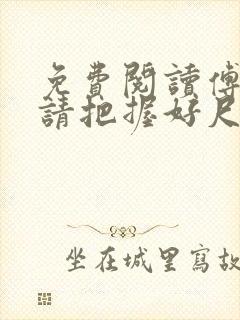 免費閱讀傅
請把握好尺
坐在城里寫故